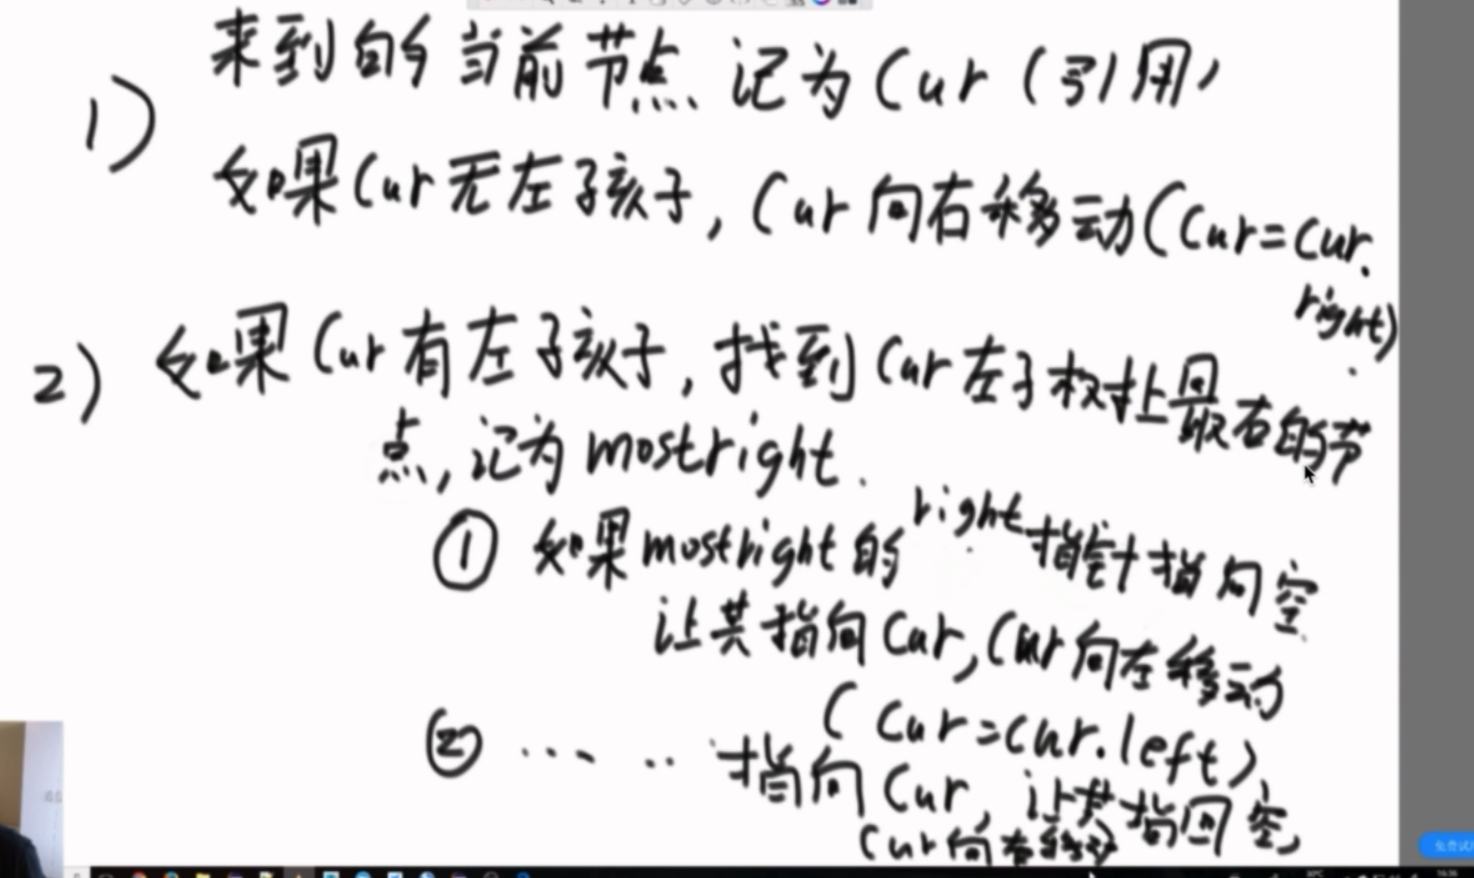 1) 来到的当前节点 记为Cur (引用)
如果Cur无左子孩子, Cur向右移动(Cur=cur.
right)
2) 如果Cur有左子孩子, 找到Cur左子树上最右的节
点, 记为mostright.
① 如果mostright的right指针指向空
让其指向Cur, Cur向左移动
(Cur=cur.left)
② ... .. 指向Cur, 让其指回空,
Cur向右移动
免费试